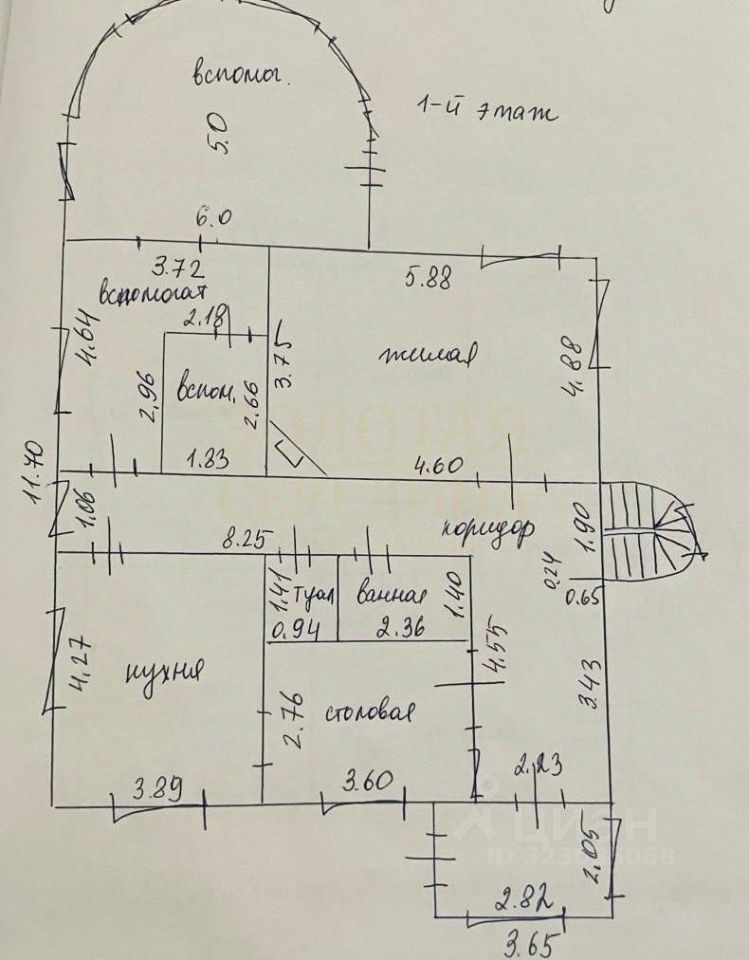 вспомог.
1-й этаж
5.0
6.0
3.72
вспомогат
5.88
2.18
4.64
3.75
жилая
4.88
2.96
вспом.
2.66
1.83
4.60
11.70
1.06
8.25
коридор
1.90
0.24
0.65
1.41
туал
ванная
1.40
0.94
2.36
4.27
кухня
2.76
столовая
4.55
3.43
3.89
3.60
2.23
2.05
2.82
3.65
циан